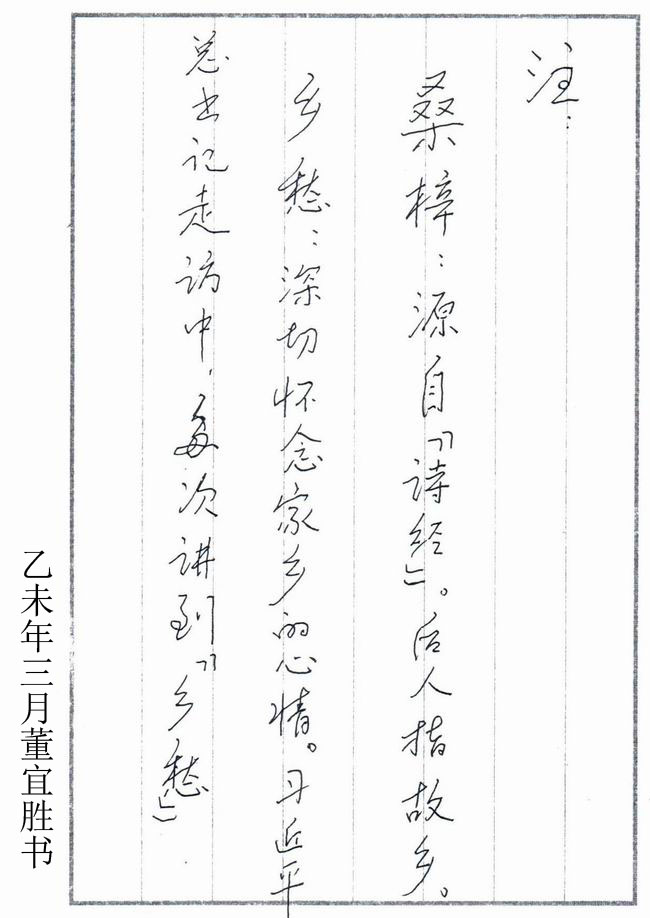 注:
桑梓:源自『诗经』。后人指故乡。
乡愁:深切怀念家乡的心情。习近平
总书记走访中,每次讲到『乡愁』
乙未年三月董宜胜书